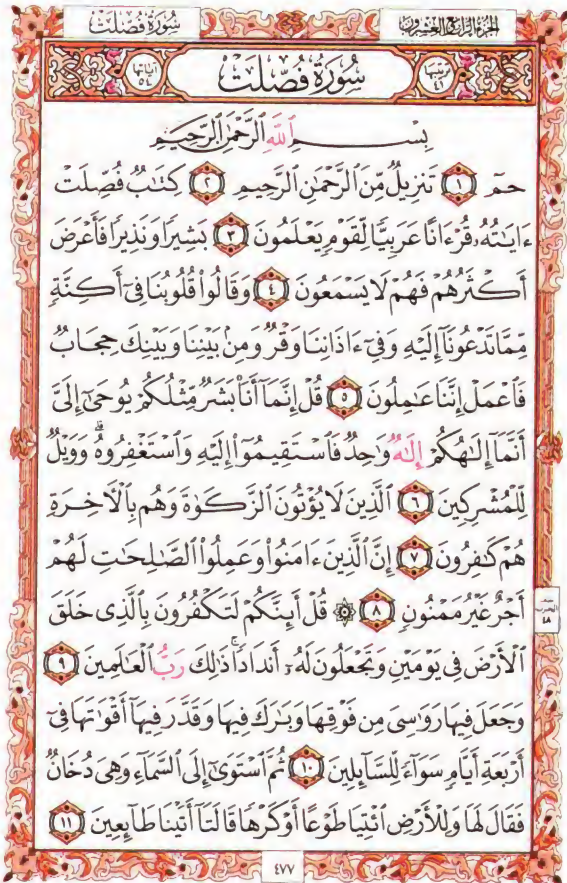 سُورَةُ فُصِّلَتْ
الجزء الرابع والعشرون
ترتيبها ٤١
سُورَةُ فُصِّلَتْ
آياتها ٥٤
بِسْمِ ٱللَّهِ ٱلرَّحْمَٰنِ ٱلرَّحِيمِ
حمٓ ١ تَنزِيلٌ مِّنَ ٱلرَّحْمَٰنِ ٱلرَّحِيمِ ٢ كِتَٰبٌ فُصِّلَتْ
ءَايَٰتُهُۥ قُرْءَانًا عَرَبِيًّا لِّقَوْمٍ يَعْلَمُونَ ٣ بَشِيرًا وَنَذِيرًا فَأَعْرَضَ
أَكْثَرُهُمْ فَهُمْ لَا يَسْمَعُونَ ٤ وَقَالُوا۟ قُلُوبُنَا فِىٓ أَكِنَّةٍ
مِّمَّا تَدْعُونَآ إِلَيْهِ وَفِىٓ ءَاذَانِنَا وَقْرٌ وَمِنۢ بَيْنِنَا وَبَيْنِكَ حِجَابٌ
فَٱعْمَلْ إِنَّنَا عَٰمِلُونَ ٥ قُلْ إِنَّمَآ أَنَا۠ بَشَرٌ مِّثْلُكُمْ يُوحَىٰٓ إِلَىَّ
أَنَّمَآ إِلَٰهُكُمْ إِلَٰهٌ وَٰحِدٌ فَٱسْتَقِيمُوٓا۟ إِلَيْهِ وَٱسْتَغْفِرُوهُ ۗ وَوَيْلٌ
لِّلْمُشْرِكِينَ ٦ ٱلَّذِينَ لَا يُؤْتُونَ ٱلزَّكَوٰةَ وَهُم بِٱلْءَاخِرَةِ
هُمْ كَٰفِرُونَ ٧ إِنَّ ٱلَّذِينَ ءَامَنُوا۟ وَعَمِلُوا۟ ٱلصَّٰلِحَٰتِ لَهُمْ
أَجْرٌ غَيْرُ مَمْنُونٍ ٨ ۞ قُلْ أَئِنَّكُمْ لَتَكْفُرُونَ بِٱلَّذِى خَلَقَ
نصف الحزب ٤٨
ٱلْأَرْضَ فِى يَوْمَيْنِ وَتَجْعَلُونَ لَهُۥٓ أَندَادًا ۚ ذَٰلِكَ رَبُّ ٱلْعَٰلَمِينَ ٩
وَجَعَلَ فِيهَا رَوَٰسِىَ مِن فَوْقِهَا وَبَٰرَكَ فِيهَا وَقَدَّرَ فِيهَآ أَقْوَٰتَهَا فِىٓ
أَرْبَعَةِ أَيَّامٍ سَوَآءً لِّلسَّآئِلِينَ ١٠ ثُمَّ ٱسْتَوَىٰٓ إِلَى ٱلسَّمَآءِ وَهِىَ دُخَانٌ
فَقَالَ لَهَا وَلِلْأَرْضِ ٱئْتِيَا طَوْعًا أَوْ كَرْهًا قَالَتَآ أَتَيْنَا طَآئِعِينَ ١١
٤٧٧